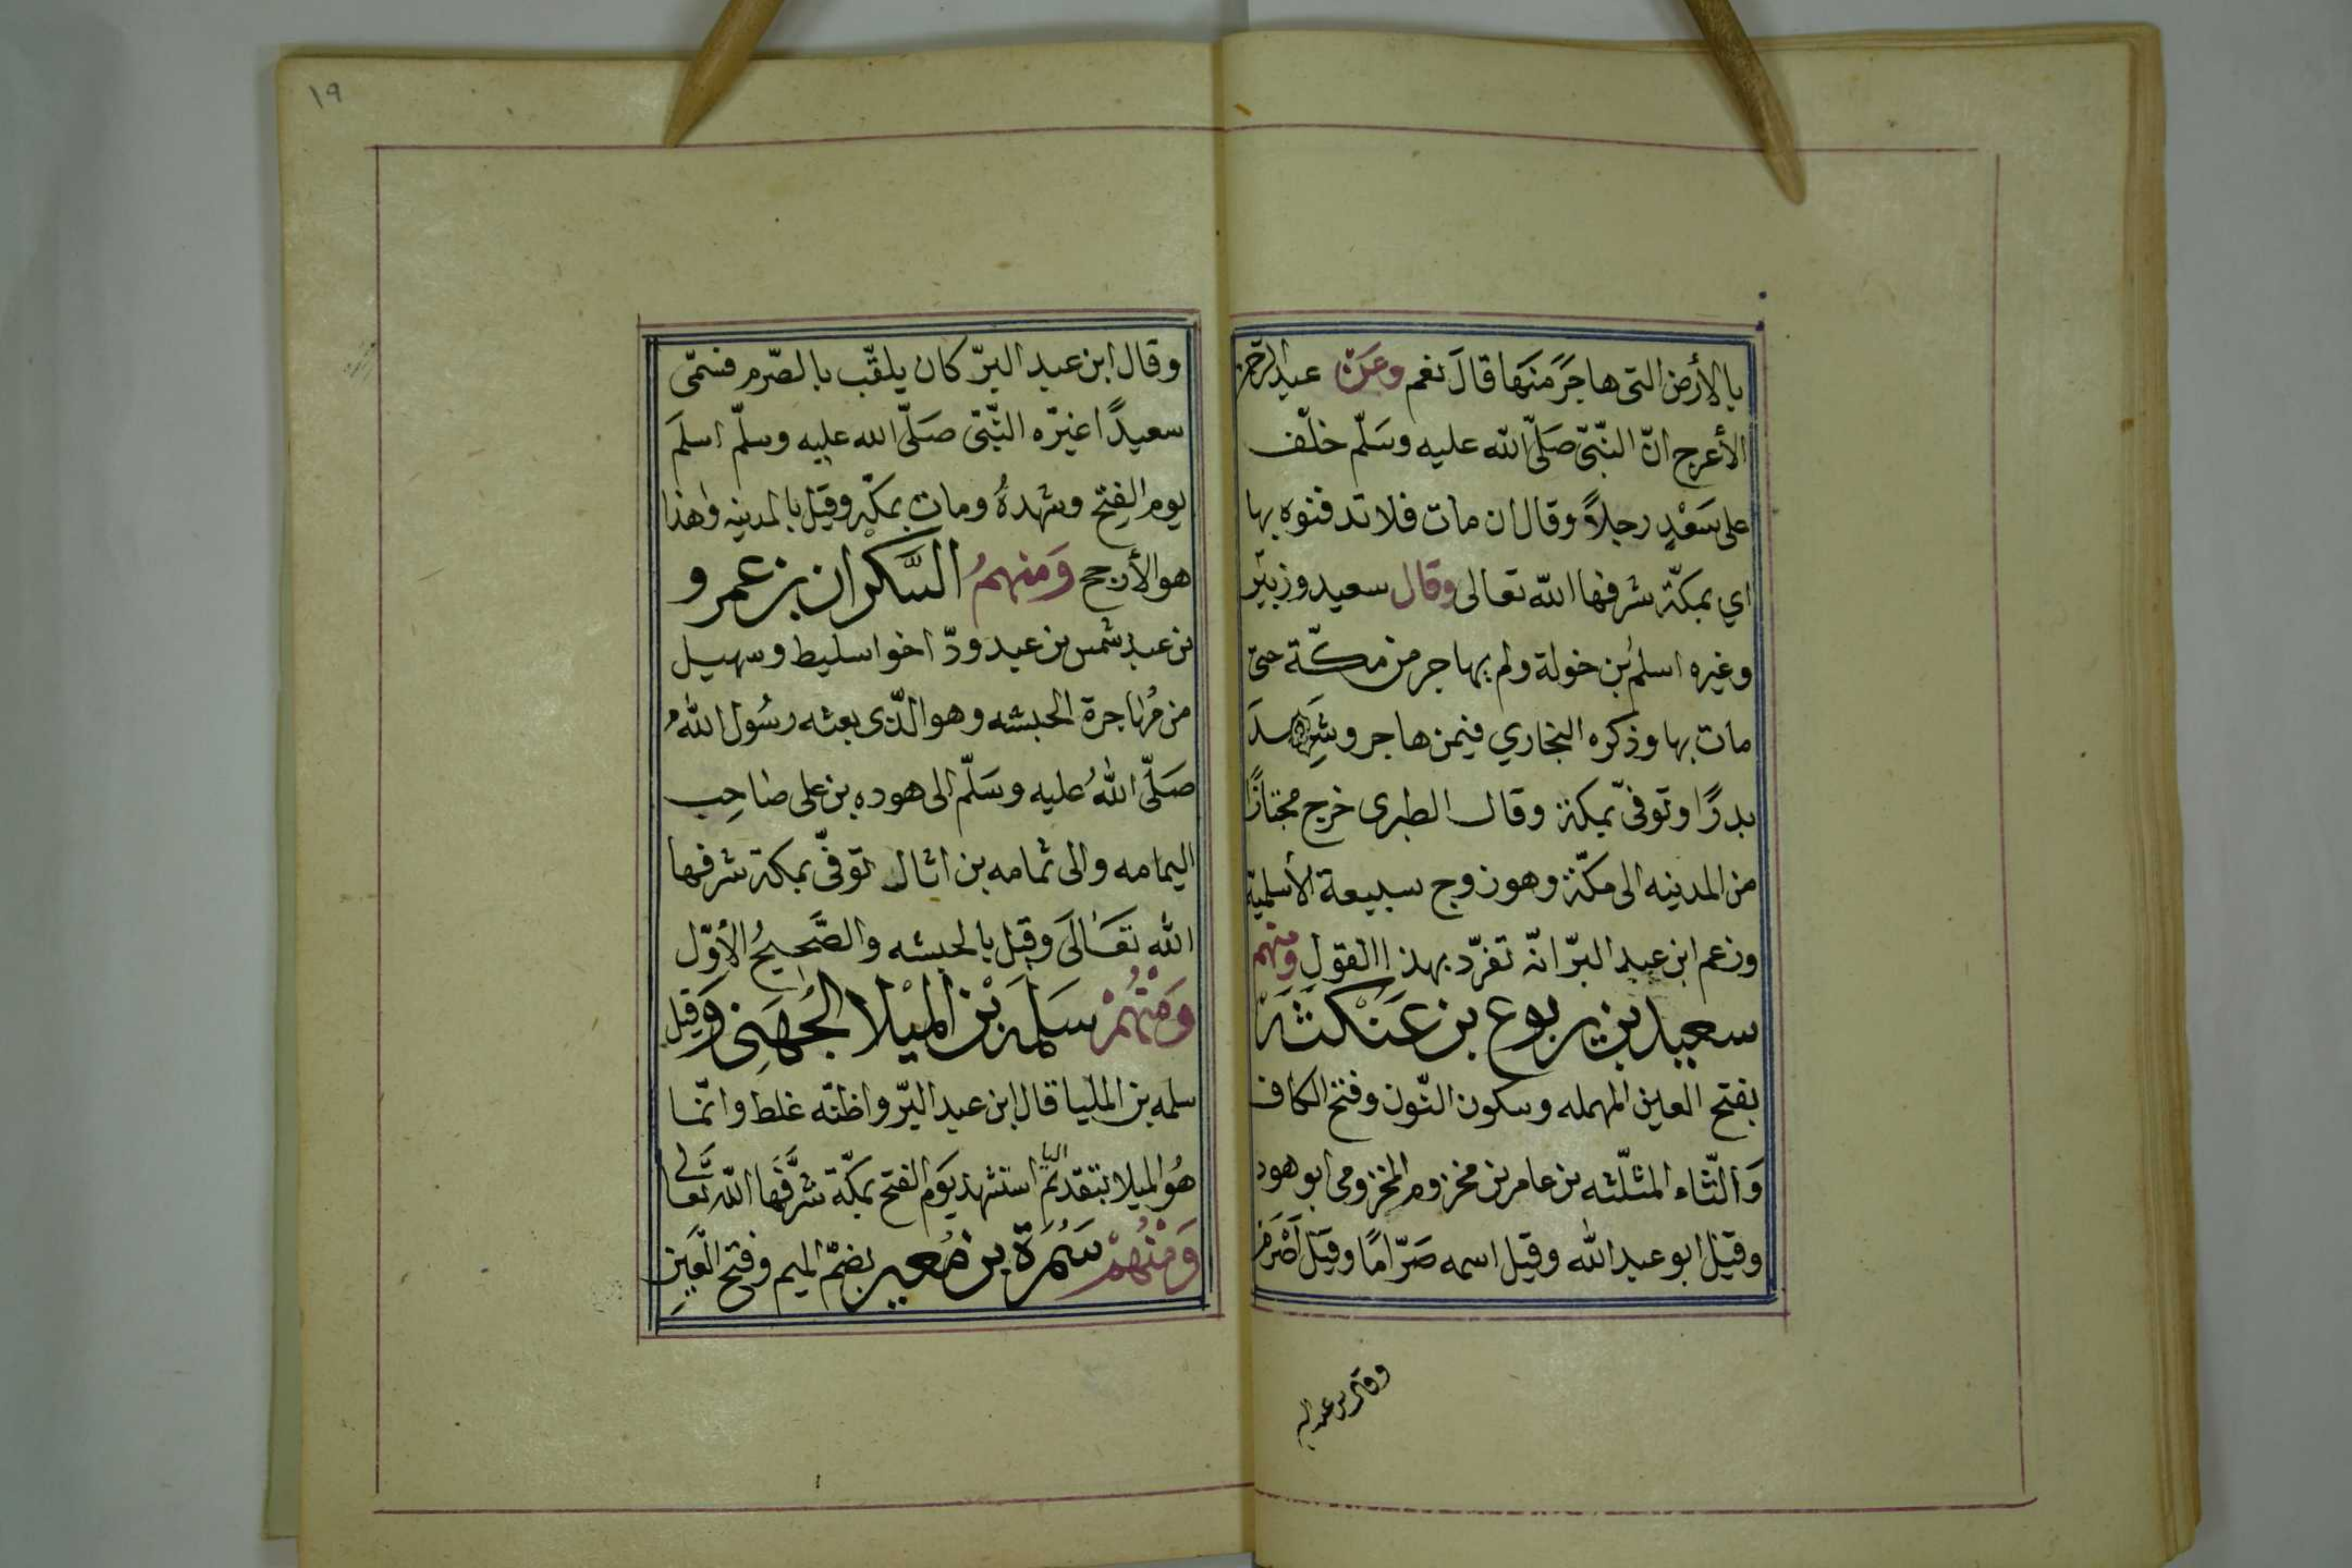 بالأرض التى هاجَرَ منَها قالَ نعم وعَن عبد الرّحمن
الأعرج انّ النّبىّ صَلّى اللّه عليه وسَلّم خلّف
على سَعْدٍ رجلاً وقال ان مات فلا تدفنوه بها
اي بمكّة شرفها اللّه تعالى وقال سعيد وزبير
وغيره اسلم ابن خولة ولم يهاجر من مكّة حتى
مات بها وذكره البخاري فيمن هاجر وشَهِدَ
بدرًا وتوفىّ بمكة وقال الطبرى خرج مجتازًا
من المدينه الى مكّة وهو زوج سبيعة الأسلمية
وزعم ابن عبد البرّ انّه تفرّد بهذا القول ومنهم
سعيد بن يربوع بن عَنْكَثَة
بفتح العين المهمله وسكون النّون وفتح الكاف
وَالثّاء المثلّثه بن عامر بن مخزوم المخزومى ابو هود
وقيل ابو عبد اللّه وقيل اسمه صَرّامًا وقيل أصْرَم
وقال بن عبد البر
١٩
وقال ابن عبد البرّ كان يلقّب بالصّرم فسمّى
سعيدًا غيّره النّبّى صَلّى اللّه عليه وسلّم اسلمَ
يوم الفتح وشهدهُ ومات بمكّه وقيل بالمدينه وهذا
هو الأرجح وَمنهمُ السَّكْران بن عمرو
بن عبد شمس بن عبد ودّ اخوا سليط وسهيل
من مُهاجرة الحبشه وهو الّذى بعثه رسُول اللّهُ
صَلّى اللّهُ عليه وسَلّم الى هوده بن على صاحِب
اليمامه والى ثمامه بن اثال توفّى بمكة شرفها
اللّه تعَالَى وقيل بالحبشه والصَّحيحُ الأوّل
وَمْنْهُمْ سَلمَه بْن المْيْلا الجُهَنى وَقيل
سلمه بن المليا قال ابن عبد البّر واظنّه غلط وانّما
هُو الميلا بتقديم اليا استشهد يَوم الفتح بمكّة شرَّفَها اللّه تعَالى
وَمنْهُمْ سَمُرَة بن مُعير بضمّ الميم وفتح العَينِ